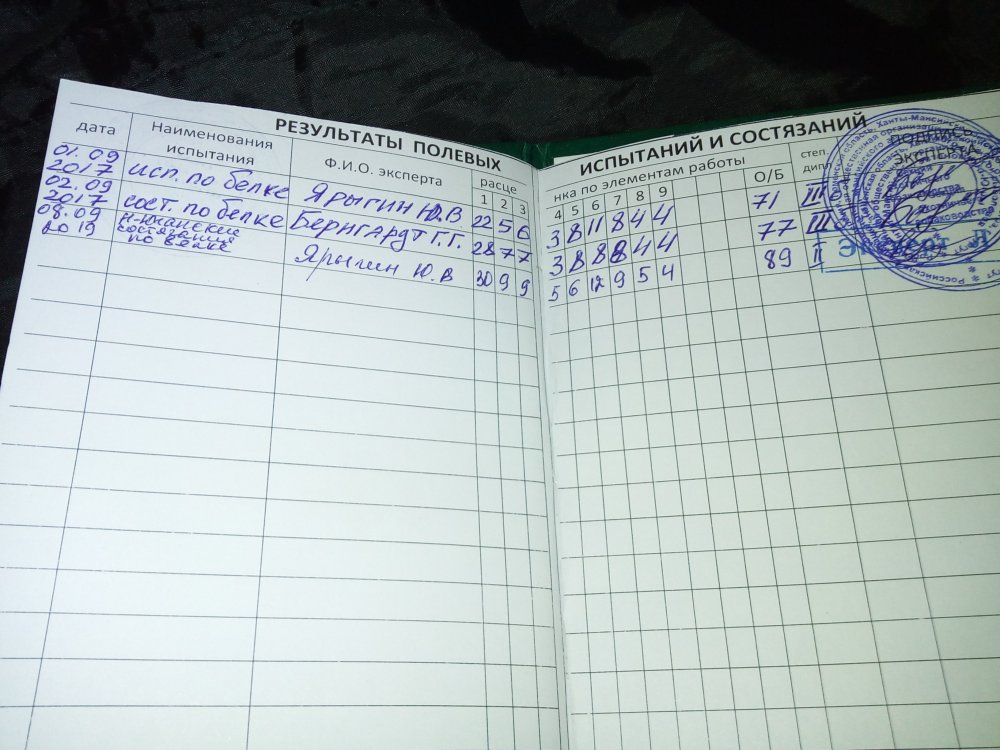 РЕЗУЛЬТАТЫ ПОЛЕВЫХ
ИСПЫТАНИЙ И СОСТЯЗАНИЙ
дата
Наименования испытания
Ф.И.О. эксперта
расце
1 2 3
нка по элементам работы
4 5 6 7 8 9
О/Б
степ. дипл
ПОДПИСЬ ЭКСПЕРТА
01.09
2017
исп. по белке
Ярыгин Ю.В
22 5 6
3 8 11 8 4 4
71
III
02.09
2017
сост. по белке
Бернгардт Г.Г.
28 7 7
3 8 8 8 4 4
77
III
08.09
2019
состязания
по белке
Ярыгин Ю.В
30 9 9
5 6 12 9 5 4
89
II
Эксперт